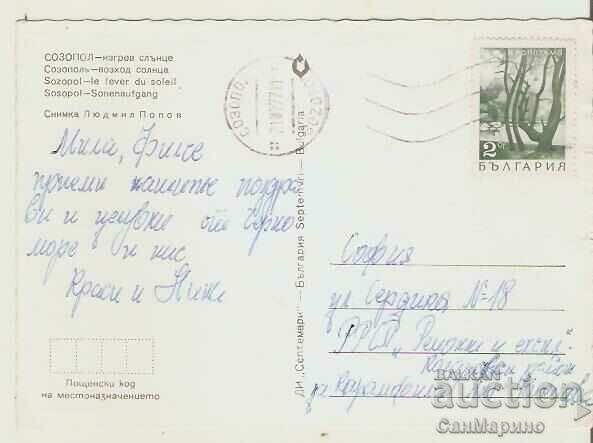 СОЗОПОЛ—изгрев слънце
Созополь—восход солнца
Sozopol—le lever du soleil
Sosopol—Sonenaufgang
Снимка Людмил Попов
Мила, Фипче
приеми нашите поздра
ви и целувки от Черно
море и нис
Краси и Ники
Пощенски код
на местоназначението
ДИ „Септември" — България Septemvri — Bulgaria
СОЗОПОЛ
SOZOPOL
2 ст
БЪЛГАРИЯ
София
ул Сердика №18
РРСП „Ремонти и експл."
за Карамфил
BALKAN
auction
СанМарино